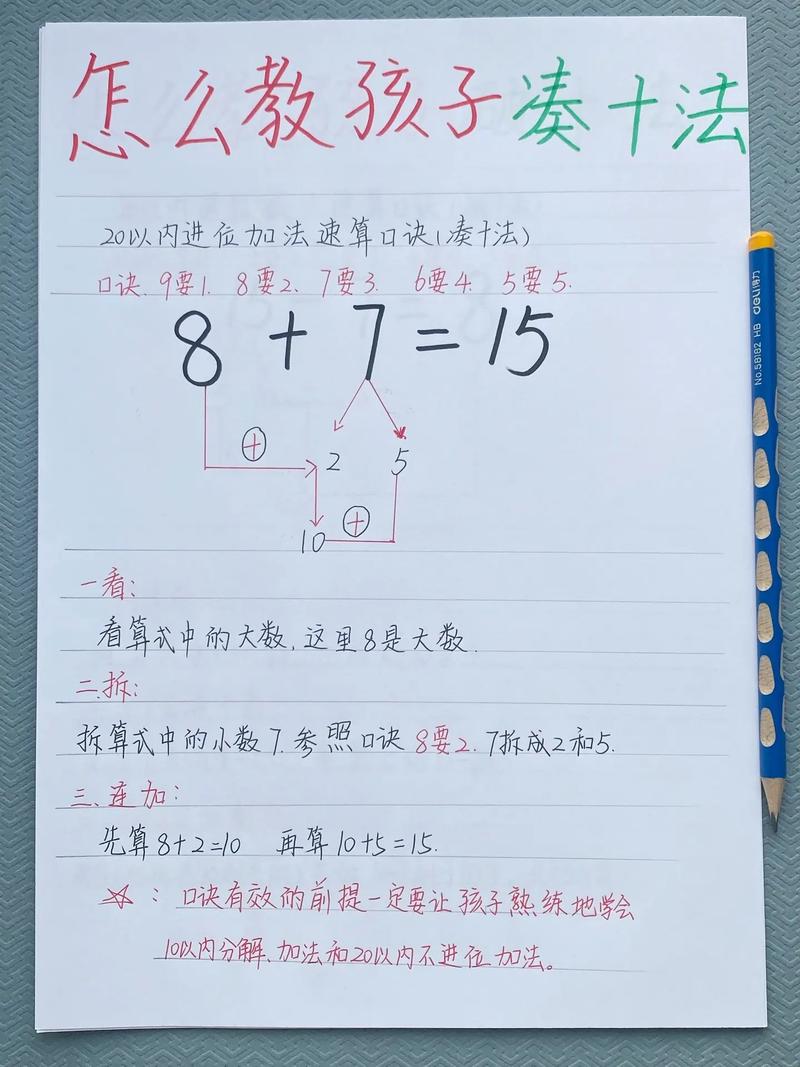 怎么教孩子凑十法
20以内进位加法速算口诀(凑十法)
口诀.9要1. 8要2. 7要3. 6要4. 5要5.
8+7=15
+ 2 5
+
10
一看:
看算式中的大数.这里8是大数.
二.拆:
拆算式中的小数7.参照口诀8要2.7拆成2和5.
三.连加:
先算8+2=10 再算10+5=15.
☆:口诀有效的前提一定要让孩子熟练地学会
10以内分解、加法和20以内不进位加法。
deli得力
No.58182 HB